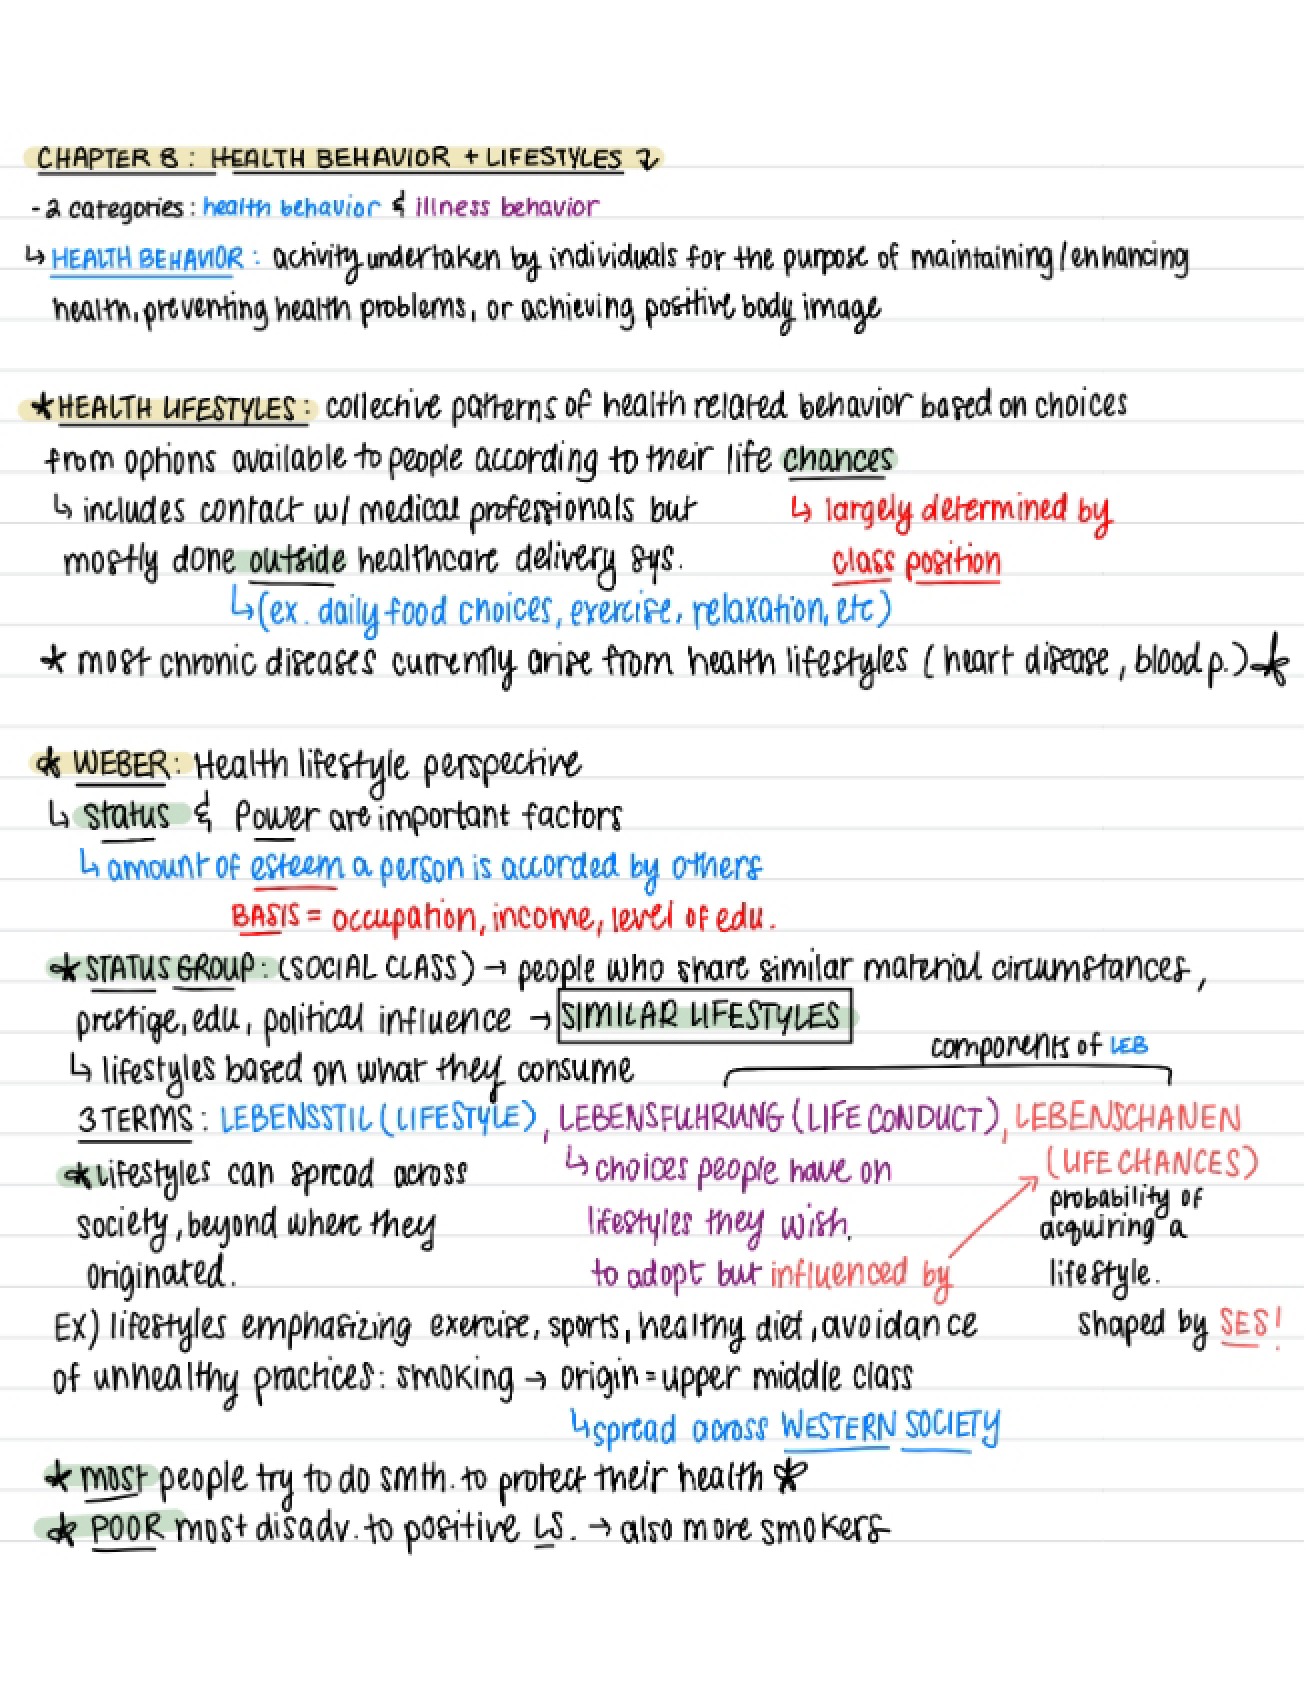 CHAPTER 8: HEALTH BEHAVIOR + LIFESTYLES
- 2 categories: health behavior & illness behavior
↳ HEALTH BEHAVIOR: activity undertaken by individuals for the purpose of maintaining/enhancing
health, preventing health problems, or achieving positive body image
* HEALTH LIFESTYLES: collective patterns of health related behavior based on choices
from options available to people according to their life chances
↳ includes contact w/ medical professionals but ↳ largely determined by
mostly done outside healthcare delivery sys. class position
↳ (ex. daily food choices, exercise, relaxation, etc)
* most chronic diseases currently arise from health lifestyles (heart disease, blood p.) *
* WEBER: Health lifestyle perspective
↳ status & Power are important factors
↳ amount of esteem a person is accorded by others
BASIS = occupation, income, level of edu.
* STATUS GROUP: (SOCIAL CLASS) → people who share similar material circumstances,
prestige, edu, political influence → SIMILAR LIFESTYLES
components of LEB
↳ lifestyles based on what they consume
3 TERMS: LEBENSSTIL (LIFESTYLE), LEBENSFUHRUNG (LIFE CONDUCT), LEBENSCHANEN
* Lifestyles can spread across ↳ choices people have on (LIFE CHANCES)
society, beyond where they lifestyles they wish. probability of
acquiring a
originated. to adopt but influenced by lifestyle.
Ex) lifestyles emphasizing exercise, sports, healthy diet, avoidance shaped by SES!
of unhealthy practices: smoking → origin = upper middle class
↳ spread across WESTERN SOCIETY
* most people try to do smth. to protect their health *
* POOR most disadv. to positive LS. → also more smokers